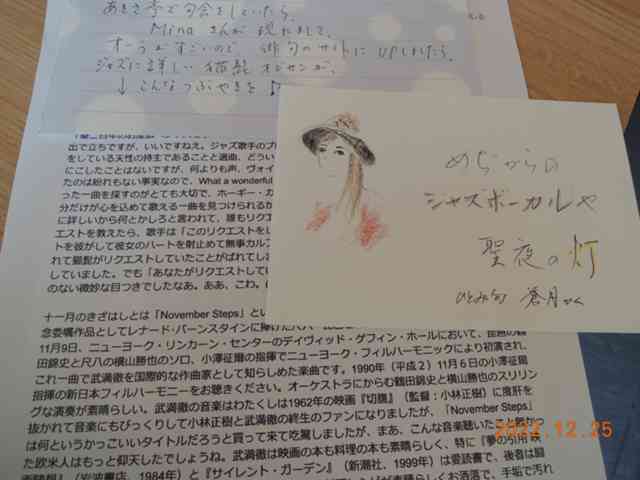 あきさ亭で句会をしていたら、
Minaさんが現れまして、
オーラがすごいので、俳句のサイトにUPしましたら、
ジャズに詳しい猫髭オジサンが、
↓こんなつぶやきを♪
出で立ちですが、いいですねえ。ジャズ歌手のプ
をしている天性の持主であることと選曲、どうい
にこしたことはないですが、何よりも声、ヴォイ
たのは紛れもない事実なので、What a wonderful
った一曲を探すのがとても大切で、ホーギー・カ
分だけが心を込めて歌える一曲を見つけられるか
に詳しいから何とかしろと言われて、誰もリクエ
エストを教えたら、歌手は「このリクエストをし
トを彼がして彼女のハートを射止めて無事カルフ
れて猫髭がリクエストしていたことがばれてしま
していました。でも「あなたがリクエストしてい
のない微妙な目つきでしたなあ。ああ、こわ。
めぢからの
ジャズボーカルや
聖夜の灯
ひとみ句 蒼月かく
十一月のきざはしとは「November Steps」とい
念委嘱作品としてレナード・バーンスタインに捧げた尺八
11月9日、ニューヨーク・リンカーン・センターのデイヴィッド・ゲフィン・ホールにおいて、琵琶の鶴
田錦史と尺八の横山勝也のソロ、小澤征爾の指揮でニューヨーク・フィルハーモニックにより初演され、
これ一曲で武満徹を国際的な作曲家として知らしめた楽曲です。1990年（平成２）11月６日の小澤征爾
指揮の新日本フィルハーモニーをお聴きください。オーケストラにからむ鶴田錦史と横山勝也のスリリン
グな演奏が素晴らしい。武満徹の音楽はわたくしは1962年の映画『切腹』（監督：小林正樹）に度肝を
抜かれて音楽にもびっくりして小林正樹と武満徹の終生のファンになりましたが、「November Steps」
は何というかっこいいタイトルだろうと買って来て吃驚しましたが、まあ、こんな音楽聴いたこと
た欧米人はもっと仰天したでしょうね。武満徹は映画の本も料理の本も素晴らしく、特に『夢の引用 映
画随想』（岩波書店、1984年）と『サイレント・ガーデン』（新潮社、1999年）は愛読書で、後者は闘
素晴らしくお洒落で、手垢で汚れ
2022.12.25